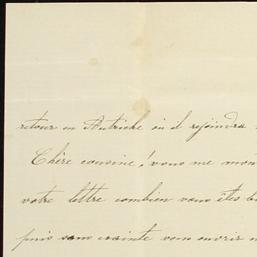 retour en Autriche où il rejoindra
Chère cousine! vous me mon
votre lettre combien vous êtes b
puis sans crainte vous ouvrir